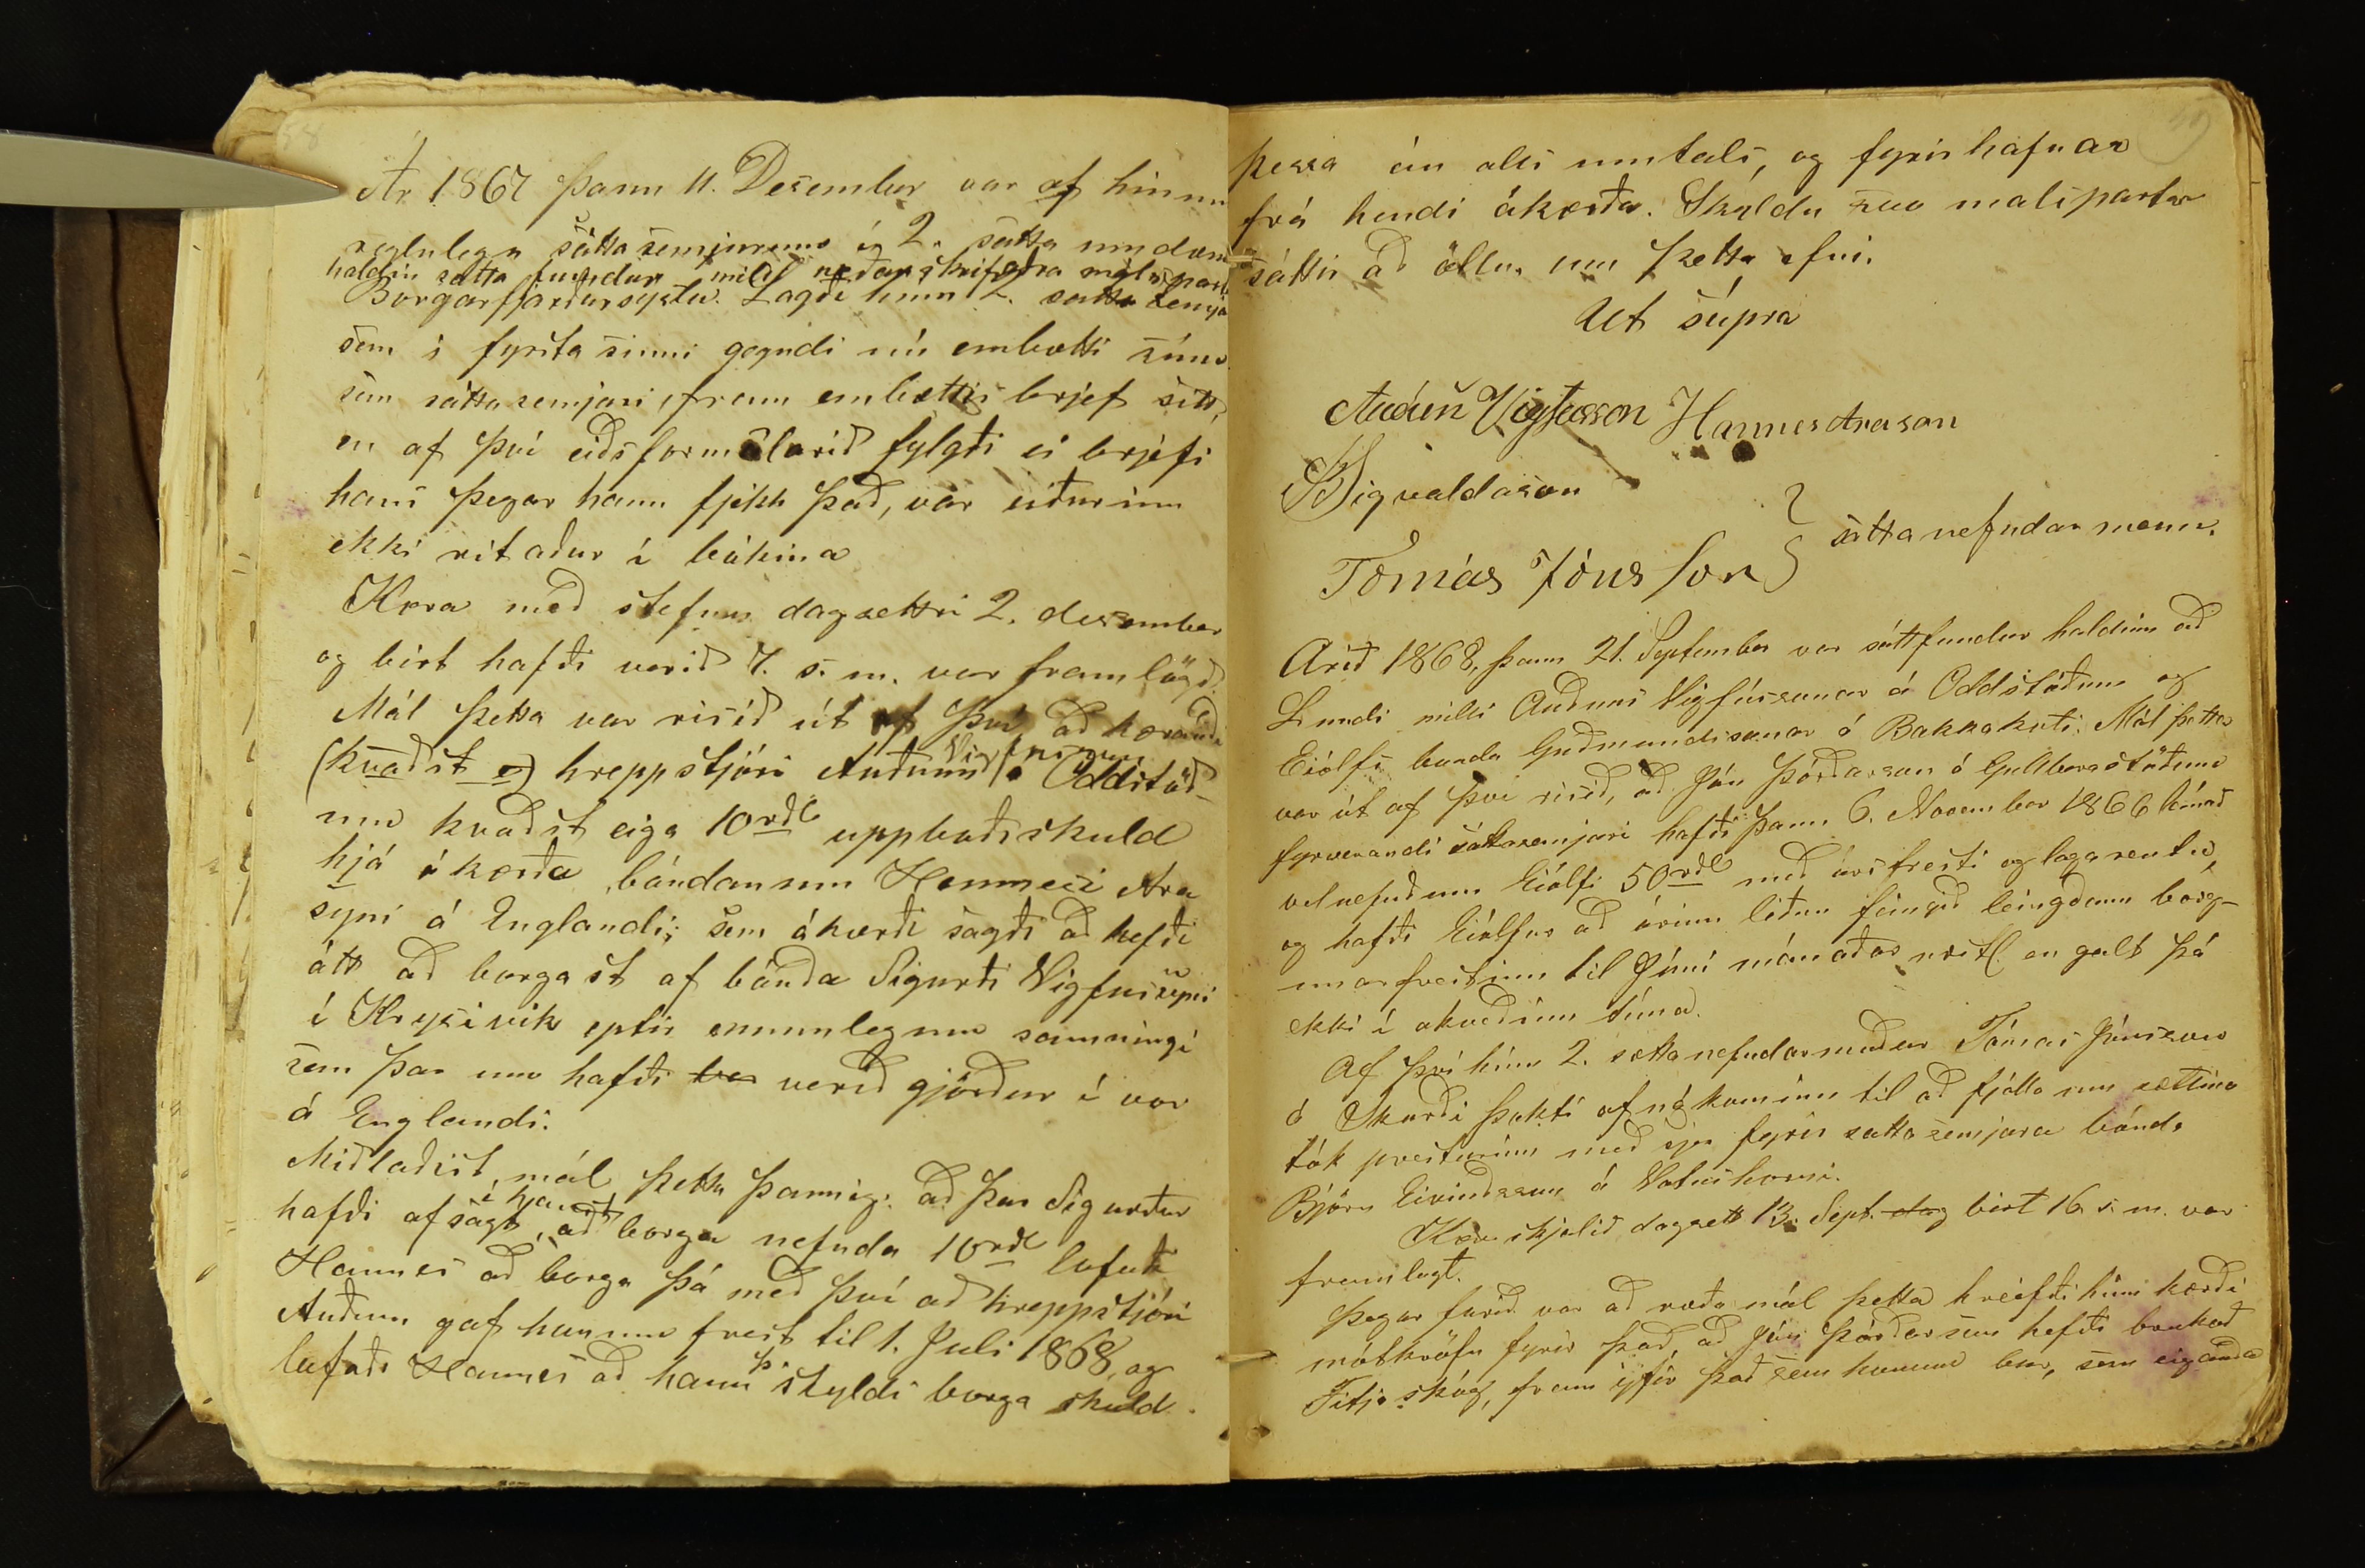 58
Ár 1867 þann 11. Desember var af hinum
reglulega sáttasemjurum í 2. sátta umdæmi
haldin sátta fundur milli neðanskrifaðra málspart
Borgarfjarðarsyslu. Lagði hinn 2. sátta semja
sem í fyrsta sinni gegndi nú embætti sínu
sem sáttasemjari, fram embættis brjef sitt,
en af því eiðsformálarið fylgði ei brjefi
hans þegar hann fjekk það, var eiðurinn
ekki ritaður í bókina
Kæra með stefnu dagsettri 2. desember
og birt hafði verið 7. s. m. var framlögð.
Mál þetta var risið út af því, að kærandi
(kvaðst og) hreppstjóri Auðunn Vigfússon á Oddstöð-
um kvaðst eiga 10 rdl uppboðsskuld
hjá ákærða bóndanum Hannesi Ara
syni á Englandi; sem ákærði sagði að hefði
átt að borgast af bónda Sigurði Vigfússyni
í Krysivik eptir munnlegum samningi
sem þar um hafði ver verið gjörður í vor
á Englandi.
Miðlaðist mál þetta þannig: að þar Sigurður
hafði afsagt, að borga nefnda 10 rdl lofaði
Hannes að borga þá með því að hreppstjóri
Auðunn gaf honum frest til 1. Juli 1868, og
lofaði Hannes að hann þá skyldi borga skuld
þessa án alls umtals, og fyrirhafnar
frá hendi ákærða. Skyldu svo málspartar
sáttir að öllu um þetta efni.
Ut súpra
Auðun Vigfússon Hannes Arason
BSigvaldason
Tomás Jónsson } sáttanefndar menn.
Arið 1868, þann 21. September var sáttfundur haldinn að
Lundi milli Auðuns Vigfússonar á Oddstöðum og
Eiólfs bonda Guðmundssonar á Bakkakoti. Mál þetta
var út af því risið, að Jón Þórðarson á Gullberastöðum
fyrverandi sáttasemjari hafði þann 6. November 1866 lánað
velnefndum Eiólfi 50 rdl með ársfresti og lagarentu,
og hafði Eiólfur að árinu liðnu feingið leingdann borg-
unarfrestinn til Júní mánaðar næstl. en galt þá
ekki í akveðinn tíma.
Af því hinn 2. sættanefndarmaður Tómas Jónsson
á Skarði þakti afnákominn til að fjalla um sættina
tók presturinn með sjer fyrir sattasemjara bónda
Björn Eivindsson á Vatnshorni.
Kæruskjalið dagsett 13. Sept. dag birt 16 s. m. var
framlagt.
Þegar farið var að ræða mál þetta kreifði hinn kærði
mótkröfu fyrir það, að Jón Þórðarson hefði brukað
Fitjaskóg, fram yfir það sem honum bar, sem eiganda